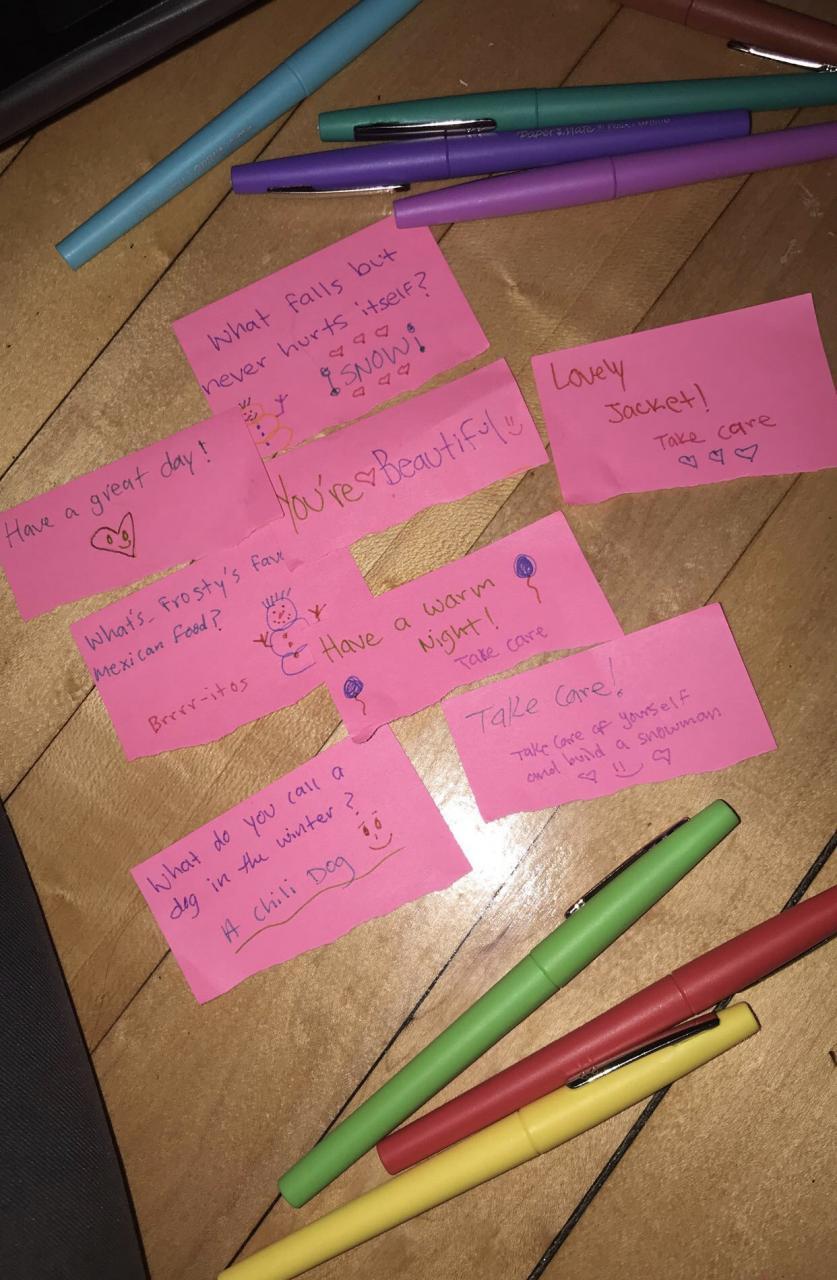 Paper Mate
What falls but
never hurts itself?
¡SNOW!
Lovely
Jacket!
Take care
Have a great day!
You're Beautiful
What's Frosty's fav
mexican food?
Brrrr-itos
Have a warm
Night!
Take care
Take Care!
Take care of yourself
and build a snowman
What do you call a
dog in the winter?
A Chili Dog